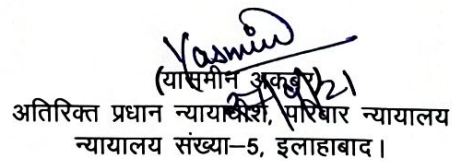 Yasmin
(यासमीन अकबर)
27/9/21
अतिरिक्त प्रधान न्यायाधीश, परिवार न्यायालय
न्यायालय संख्या–5, इलाहाबाद।